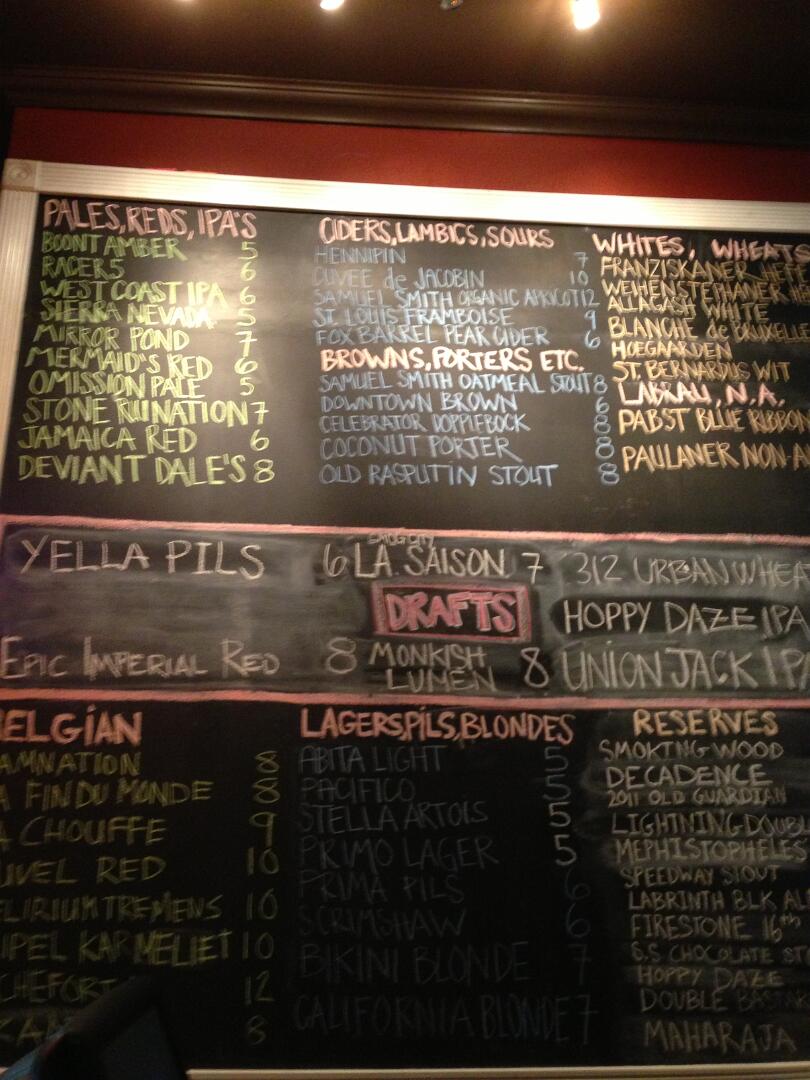 PALES, REDS, IPA'S
BOONT AMBER 5
RACER 5 6
WEST COAST IPA 6
SIERRA NEVADA 5
MIRROR POND 7
MERMAID'S RED 6
OMISSION PALE 5
STONE RUINATION 7
JAMAICA RED 6
DEVIANT DALE'S 8
CIDERS, LAMBICS, SOURS
HENNIPIN 7
CUVEE de JACOBIN 10
SAMUEL SMITH ORGANIC APRICOT 12
ST. LOUIS FRAMBOISE 9
FOX BARREL PEAR CIDER 6
BROWNS, PORTERS ETC.
SAMUEL SMITH OATMEAL STOUT 8
DOWNTOWN BROWN 6
CELEBRATOR DOPPLEBOCK 8
COCONUT PORTER 8
OLD RASPUTIN STOUT 8
WHITES, WHEATS
FRANZISKANER HEFE
WEIHENSTEPHANER H
ALLAGASH WHITE
BLANCHE de BRUXELLE
HOEGAARDEN
ST. BERNARDUS WIT
LABRAU, N.A.
PABST BLUE RIBBON
PAULANER NON A
YELLA PILS 6
EPIC IMPERIAL RED 8
LA SAISON 7
DRAFTS
MONKISH LUMEN 8
312 URBAN WHEAT
HOPPY DAZE IPA
UNION JACK IPA
ELGIAN
AMNATION 8
A FIN DU MONDE 8
A CHOUFFE 9
UVEL RED 10
ELIRIUM TREMENS 10
IPEL KARMELIET 10
CHEFORT 12
8
LAGERS, PILS, BLONDES
ABITA LIGHT 5
PACIFICO 5
STELLA ARTOIS 5
PRIMO LAGER 5
PRIMA PILS 6
SCRIMSHAW 6
BIKINI BLONDE 7
CALIFORNIA BLONDE 7
RESERVES
SMOKING WOOD
DECADENCE
2011 OLD GUARDIAN
LIGHTNING DOUBL
MEPHISTOPHELES
SPEEDWAY STOUT
LABRINTH BLK AL
FIRESTONE 16TH
6.5 CHOCOLATE ST
HOPPY DAZE
DOUBLE BASTAR
MAHARAJA